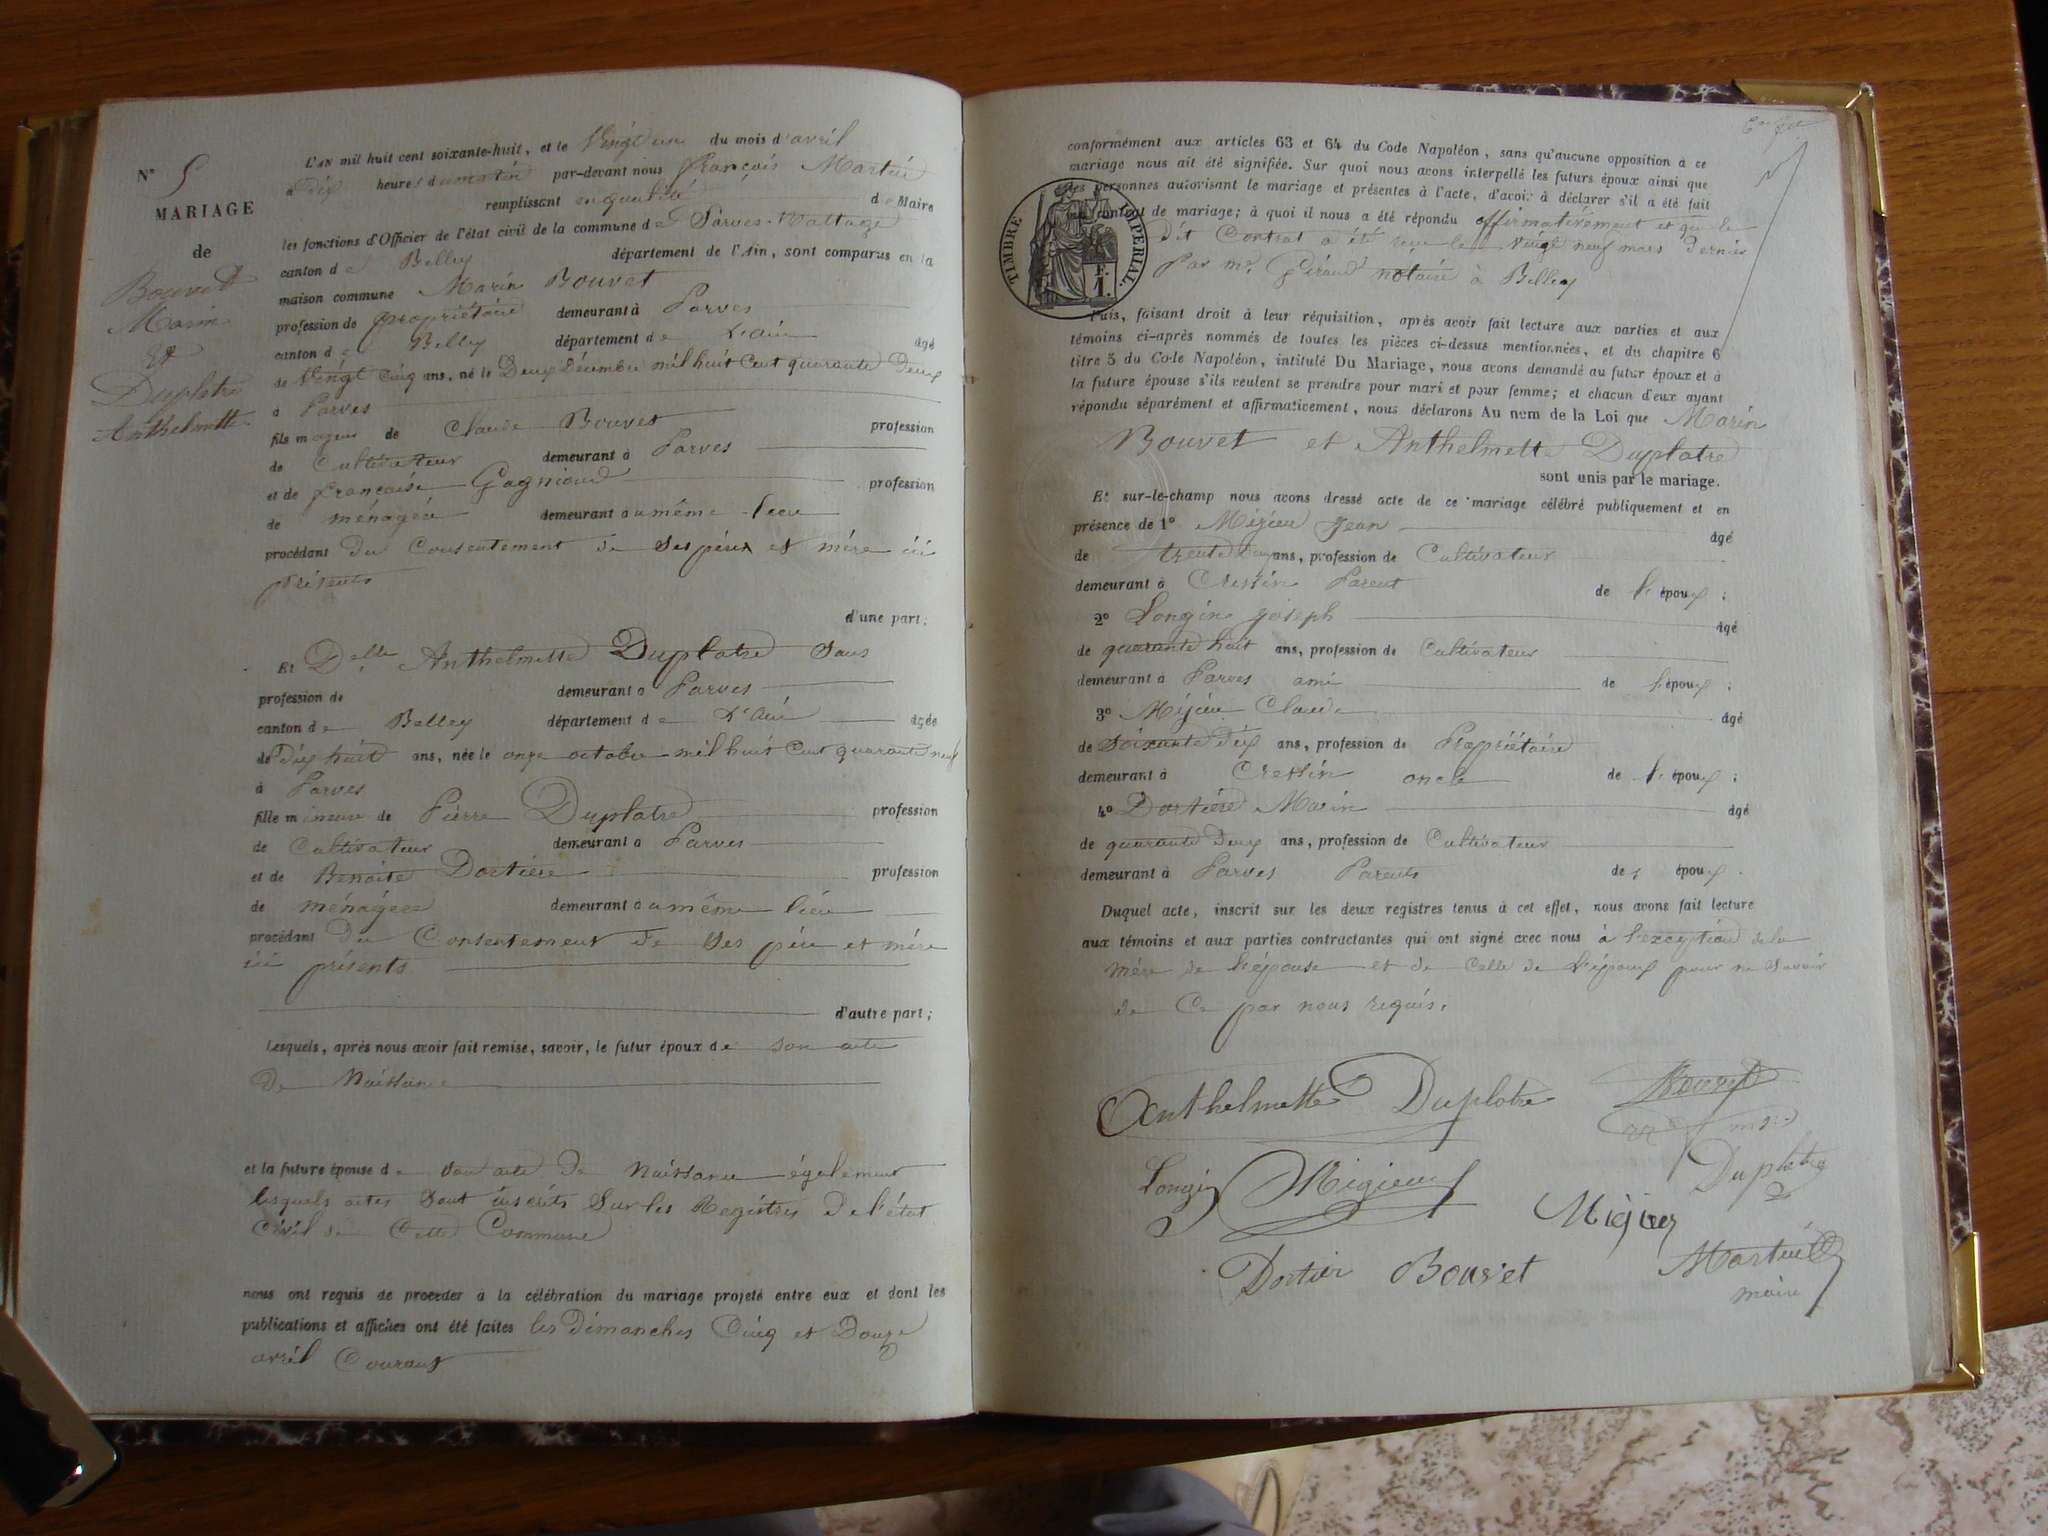 N° 5
MARIAGE
de
Bouvet
Marin
Et
Duplatre
Anthelmette
L'AN mil huit cent soixante-huit, et le Vingt un du mois d'avril
à dix heures du matin par-devant nous François Martin
remplissant en qualité de Maire
les fonctions d'Officier de l'état civil de la commune de Parves-Nattage
canton de Belley département de l'Ain, sont comparus en la
maison commune Marin Bouvet
profession de propriétaire demeurant à Parves
canton de Belley département de L'ain âgé
de Vingt Cinq ans, né le Deux Décembre mil huit Cent quarante Deux
à Parves
fils majeur de Claude Bouvet profession
de Cultivateur demeurant à Parves
et de françoise profession
de ménagère demeurant au même lieu
procédant du Consentement de ses père et mère ici
présents
d'une part;
Et Delle Anthelmette Duplatre Sans
profession de demeurant à Parves
canton de Belley département de L'Ain âgée
de Dix huit ans, née le onze octobre mil huit Cent quarante neuf
à Parves
fille mineure de Pierre Duplatre profession
de Cultivateur demeurant à Parves
et de Benoite Dortière profession
de ménagère demeurant au même lieu
procédant du Consentement de Ses père et mère
ici présents
d'autre part;
Lesquels, après nous avoir fait remise, savoir, le futur époux de son acte
De Naissance
et la future épouse de son acte De Naissance également
lesquels actes Sont inscrits Sur les Registres De l'état
Civil de Cette Commune
nous ont requis de procéder à la célébration du mariage projeté entre eux et dont les
publications et affiches ont été faites les Dimanches Cinq et Douze
avril Courant
conformément aux articles 63 et 64 du Code Napoléon, sans qu'aucune opposition à ce
mariage nous ait été signifiée. Sur quoi nous avons interpellé les futurs époux ainsi que
les personnes autorisant le mariage et présentes à l'acte, d'avoir à déclarer s'il a été fait
un contrat de mariage; à quoi il nous a été répondu affirmativement et que le
dit Contrat a été reçu le Vingt neuf mars dernier
Par me. Géraud notaire à Belley
TIMBRE IMPERIAL.
F.
1.
Puis, faisant droit à leur réquisition, après avoir fait lecture aux parties et aux
témoins ci-après nommés de toutes les pièces ci-dessus mentionnées, et du chapitre 6
titre 5 du Code Napoléon, intitulé Du Mariage, nous avons demandé au futur époux et à
la future épouse s'ils veulent se prendre pour mari et pour femme; et chacun d'eux ayant
répondu séparément et affirmativement, nous déclarons Au nom de la Loi que Marin
Bouvet et Anthelmette Duplatre
sont unis par le mariage.
Et sur-le-champ nous avons dressé acte de ce mariage célébré publiquement et en
présence de 1° Jean âgé
de ans, profession de Cultivateur
demeurant à Cressin Parent de l'époux;
2° Longin joseph âgé
de quarante huit ans, profession de Cultivateur
demeurant à Parves ami de l'époux;
3° Claude âgé
de Soixante Dix ans, profession de Propriétaire
demeurant à Cressin oncle de l'époux;
4° Dortière Marin âgé
de quarante Deux ans, profession de Cultivateur
demeurant à Parves Parents des époux.
Duquel acte, inscrit sur les deux registres tenus à cet effet, nous avons fait lecture
aux témoins et aux parties contractantes qui ont signé avec nous à l'exception de la
mère de l'épouse et de Celle de l'époux pour ne Savoir
de Ce par nous requis.
Anthelmette Duplatre Bouvet
Longin Migieux Duplatre
Dortier Bouvet Martin
maire